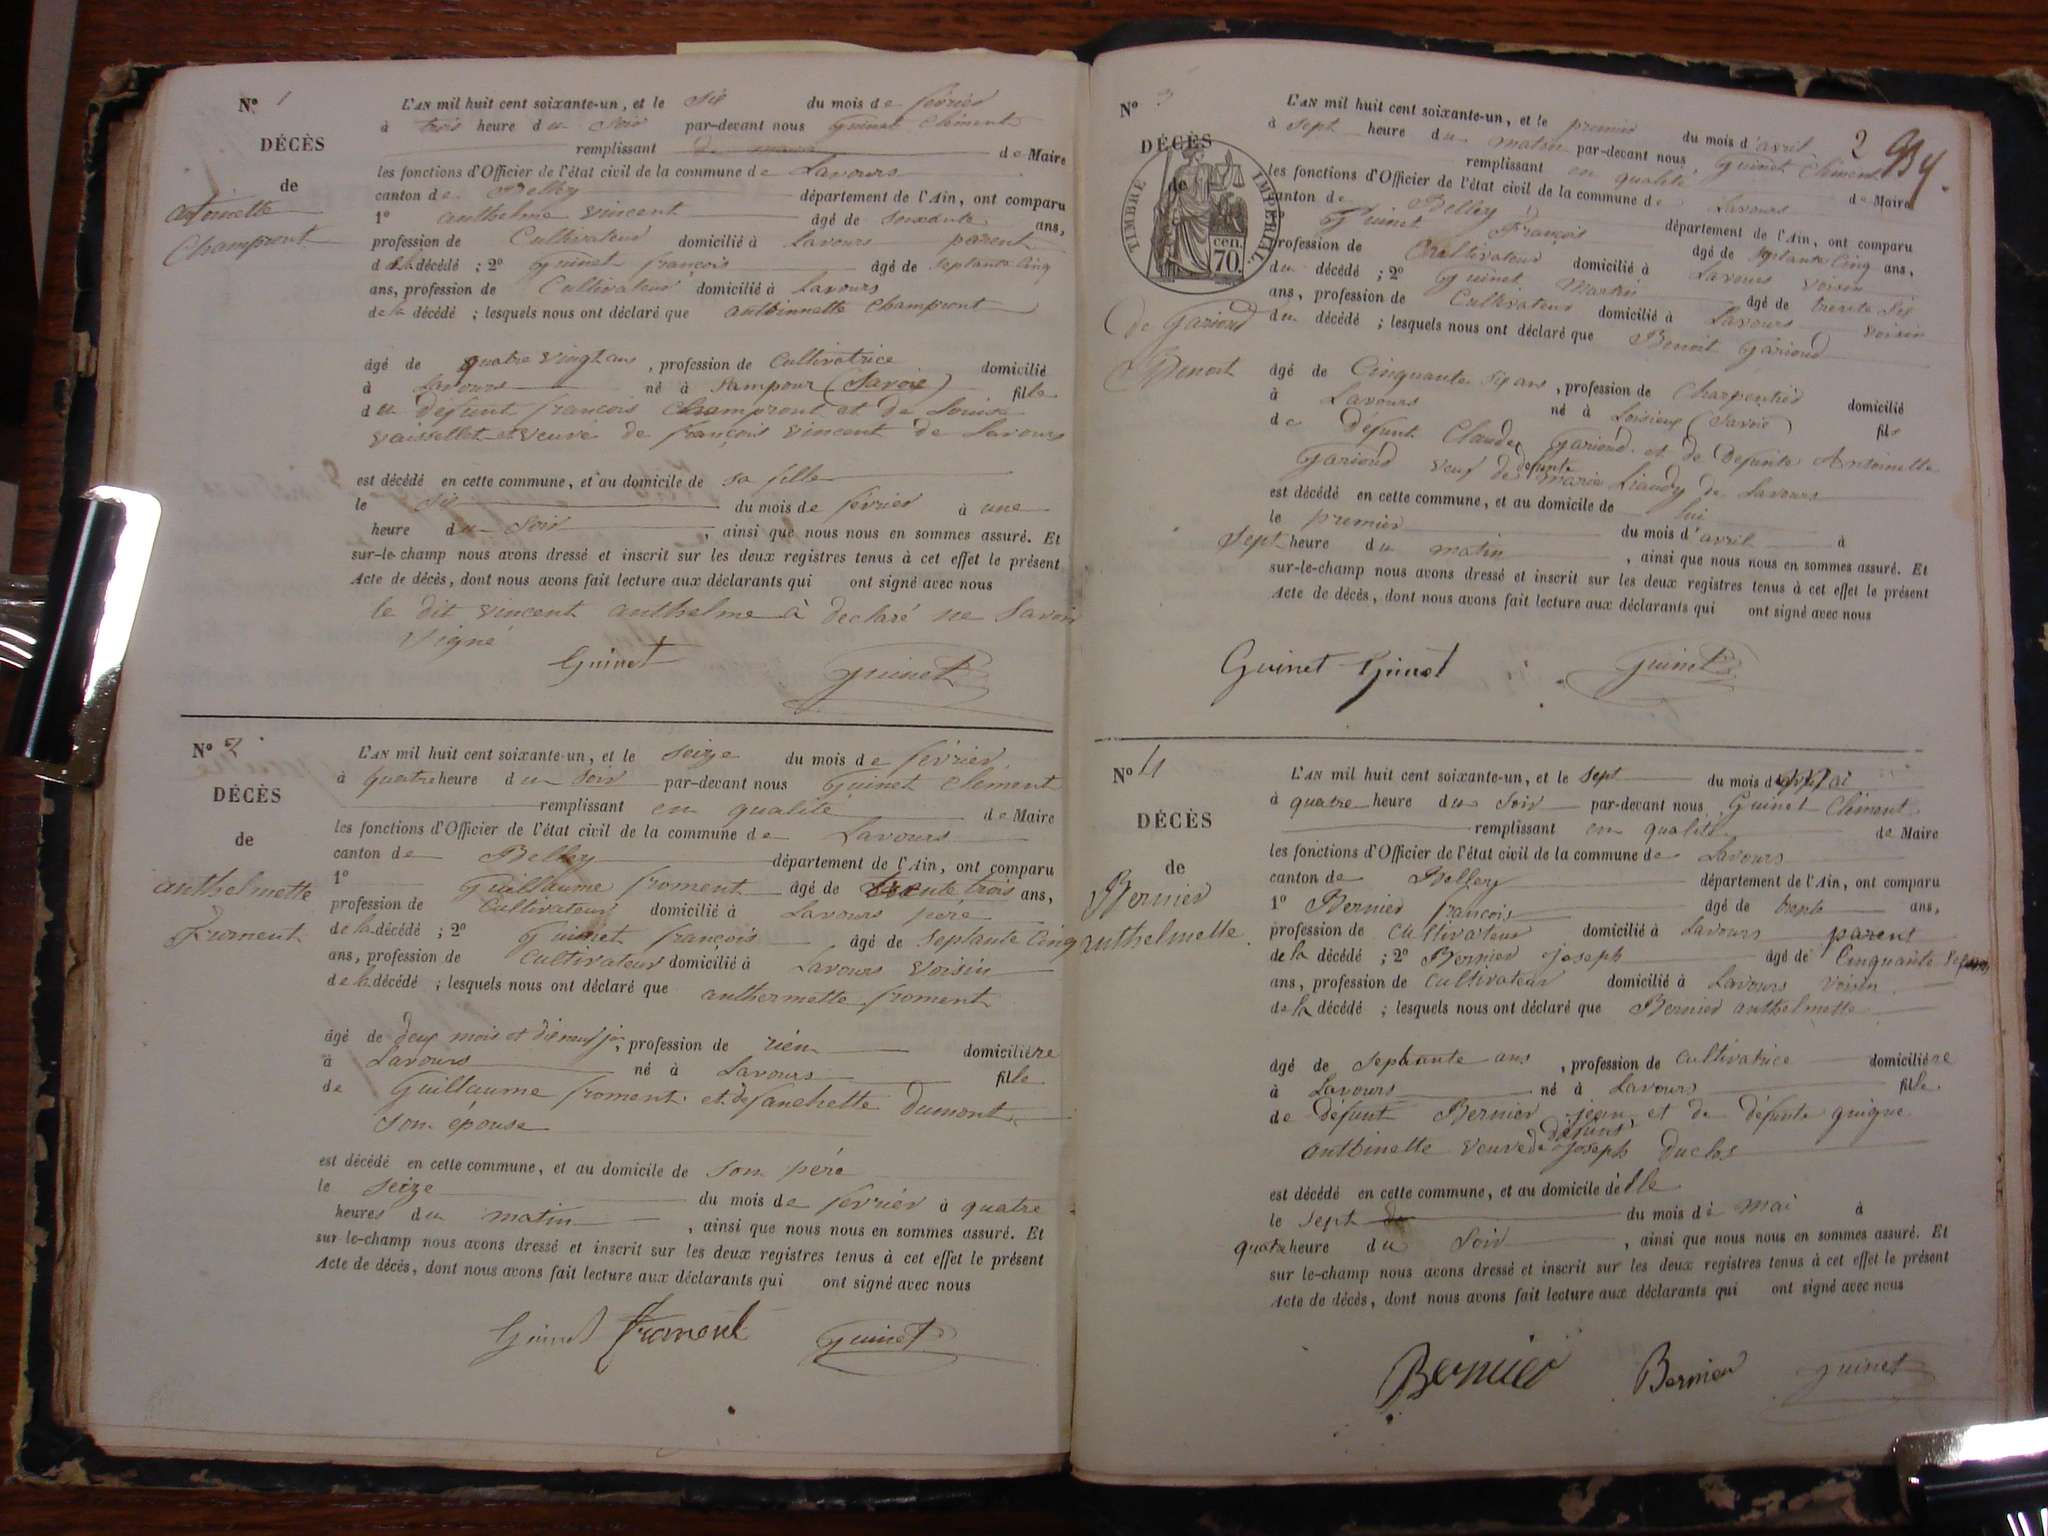 N° 1
DÉCÈS
de
antoinette
Champront
L'AN mil huit cent soixante-un, et le six du mois de février
à trois heure du soir par-devant nous Guinet Clément
remplissant de Maire
les fonctions d'Officier de l'état civil de la commune de Lavours
canton de Belley département de l'Ain, ont comparu
1° anthelme vincent âgé de soixante ans,
profession de Cultivateur domicilié à Lavours parent
de la décédé ; 2° Guinet françois âgé de septante cinq
ans, profession de Cultivateur domicilié à Lavours
de la décédé ; lesquels nous ont déclaré que anthoinnette Champront
âgé de quatre vingt ans, profession de Cultivatrice domicilié
à Lavours né à (Savoie) fille
du défunt françois Champront et de Louise
vaissellet et veuve de françois vincent de Lavours
est décédé en cette commune, et au domicile de sa fille
le six du mois de février à une
heure du soir, ainsi que nous nous en sommes assuré. Et
sur-le-champ nous avons dressé et inscrit sur les deux registres tenus à cet effet le présent
Acte de décès, dont nous avons fait lecture aux déclarants qui ont signé avec nous
le dit vincent anthelme à declaré ne Savoir
signé
Guinet Guinet
N° 2
DÉCÈS
de
anthelmette
froment
L'AN mil huit cent soixante-un, et le seize du mois de février
à quatre heure du soir par-devant nous Guinet Clément
remplissant en qualité de Maire
les fonctions d'Officier de l'état civil de la commune de Lavours
canton de Belley département de l'Ain, ont comparu
1° Guillaume froment âgé de trente trois ans,
profession de Cultivateur domicilié à Lavours père
de la décédé ; 2° Guinet françois âgé de septante cinq
ans, profession de Cultivateur domicilié à Lavours voisin
de la décédé ; lesquels nous ont déclaré que anthermette froment
âgé de deux mois et dix neuf jour, profession de rien domicilière
à Lavours né à Lavours fille
de Guillaume froment et de fanchette Dumont
son épouse
est décédé en cette commune, et au domicile de son père
le seize du mois de février à quatre
heures du matin, ainsi que nous nous en sommes assuré. Et
sur-le-champ nous avons dressé et inscrit sur les deux registres tenus à cet effet le présent
Acte de décès, dont nous avons fait lecture aux déclarants qui ont signé avec nous
Guinet froment Guinet
2
N° 3
DÉCÈS
de
TIMBRE IMPÉRIAL
cen.
70.
de Gariond
Benoit
L'AN mil huit cent soixante-un, et le premier du mois d'avril
à sept heure du matin par-devant nous Guinet Clément
remplissant en qualité de Maire
les fonctions d'Officier de l'état civil de la commune de Lavours
canton de Belley département de l'Ain, ont comparu
Guinet François âgé de septante cinq ans,
profession de Cultivateur domicilié à Lavours voisin
du décédé ; 2° Guinet Martin âgé de trente six
ans, profession de Cultivateur domicilié à Lavours voisin
du décédé ; lesquels nous ont déclaré que Benoit Gariond
âgé de Cinquante six ans, profession de Charpentier domicilié
à Lavours né à Loisieux (Savoie) fils
de défunt Claude Gariond et de Defunte Antoinette
Gariond veuf de defunte marie Liaudy de Lavours
est décédé en cette commune, et au domicile de lui
le premier du mois d'avril à
sept heure du matin, ainsi que nous nous en sommes assuré. Et
sur-le-champ nous avons dressé et inscrit sur les deux registres tenus à cet effet le présent
Acte de décès, dont nous avons fait lecture aux déclarants qui ont signé avec nous
Guinet Guinet Guinet
N° 4
DÉCÈS
de
Bernier
anthelmette
L'AN mil huit cent soixante-un, et le sept du mois de mai
à quatre heure du soir par-devant nous Guinet Clément
remplissant en qualité de Maire
les fonctions d'Officier de l'état civil de la commune de Lavours
canton de Belley département de l'Ain, ont comparu
1° Bernier françois âgé de trente ans,
profession de cultivateur domicilié à Lavours parent
de la décédé ; 2° Bernier joseph âgé de Cinquante
ans, profession de Cultivateur domicilié à Lavours voisin
de la décédé ; lesquels nous ont déclaré que Bernier anthelmette
âgé de septante ans, profession de Cultivatrice domicilière
à Lavours né à Lavours fille
de défunt Bernier jean et de défunte guigue
anthoinette veuve de défunt joseph Duclos
est décédé en cette commune, et au domicile d'elle
le sept du mois de mai à
quatre heure du soir, ainsi que nous nous en sommes assuré. Et
sur-le-champ nous avons dressé et inscrit sur les deux registres tenus à cet effet le présent
Acte de décès, dont nous avons fait lecture aux déclarants qui ont signé avec nous
Bernier Bernier Guinet